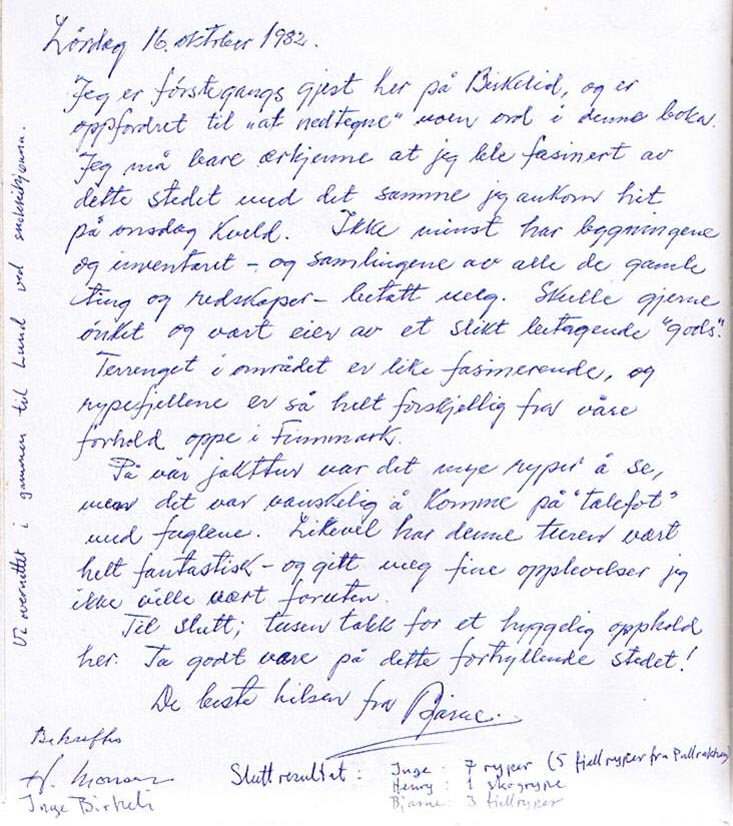 Lördag 16. oktober 1982.
Jeg er förstegangs gjest her på Birkelid, og er
oppfordret til "at nedtegne" noen ord i denne boka.
Jeg må bare erkjenne at jeg ble fasinert av
dette stedet med det samme jeg ankom hit
på onsdag kveld. Ikke minst har bygningene
og inventaret - og samlingene av alle de gamle
ting og redskaper - betatt meg. Skulle gjerne
önsket og vært eier av et slikt betagende "gods".
Terrenget i området er like fasinerende, og
rypefjellene er så helt forskjellig fra våre
forhold oppe i Finnmark.
På vår jakttur var det mye ryper å se,
men det var vanskelig å komme på "talefot"
med fuglene. Likevel har denne turen vært
helt fantastisk - og gitt meg fine opplevelser jeg
ikke ville vært foruten.
Til slutt; tusen takk for et hyggelig opphold
her. Ta godt vare på dette fortryllende stedet!
De beste hilsen fra Bjarne.
Bekreftes
H.
Inge Birkeli
Sluttresultat: Inge: 7 ryper (5 fjellryper fra
Henry: 1 skogrype
Bjarne: 3 fjellryper
Vi overnattet i gammen til Lund ved